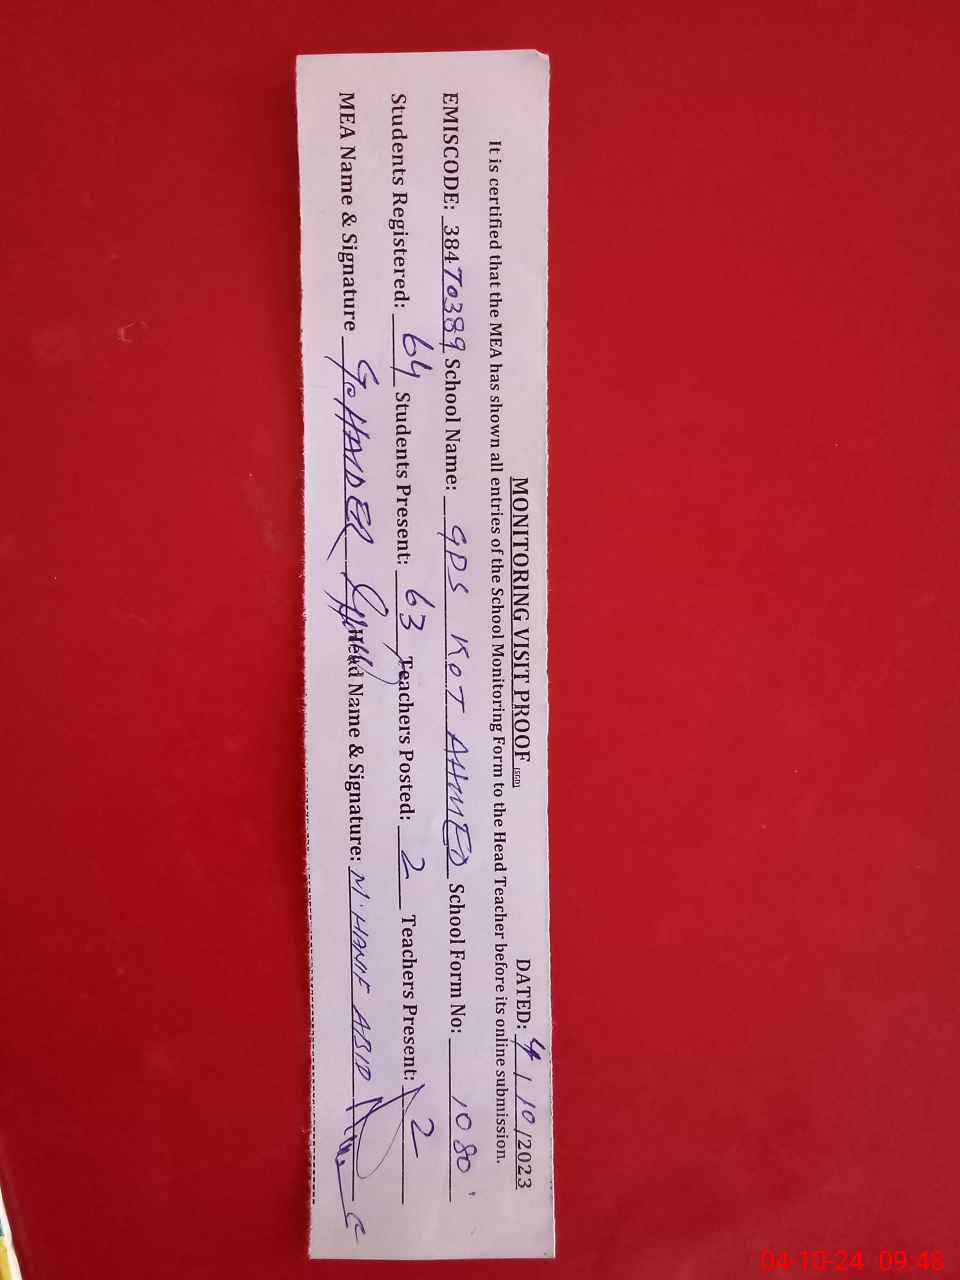 MONITORING VISIT PROOF (SGD) DATED: 4 / 10 /2023
It is certified that the MEA has shown all entries of the School Monitoring Form to the Head Teacher before its online submission.
EMISCODE: 38470389 School Name: GPS KOT AHMED School Form No: 1080
Students Registered: 64 Students Present: 63 Teachers Posted: 2 Teachers Present: 2
MEA Name & Signature HAIDER Head Name & Signature: M. HANIF ABID
04-10-24 09:48